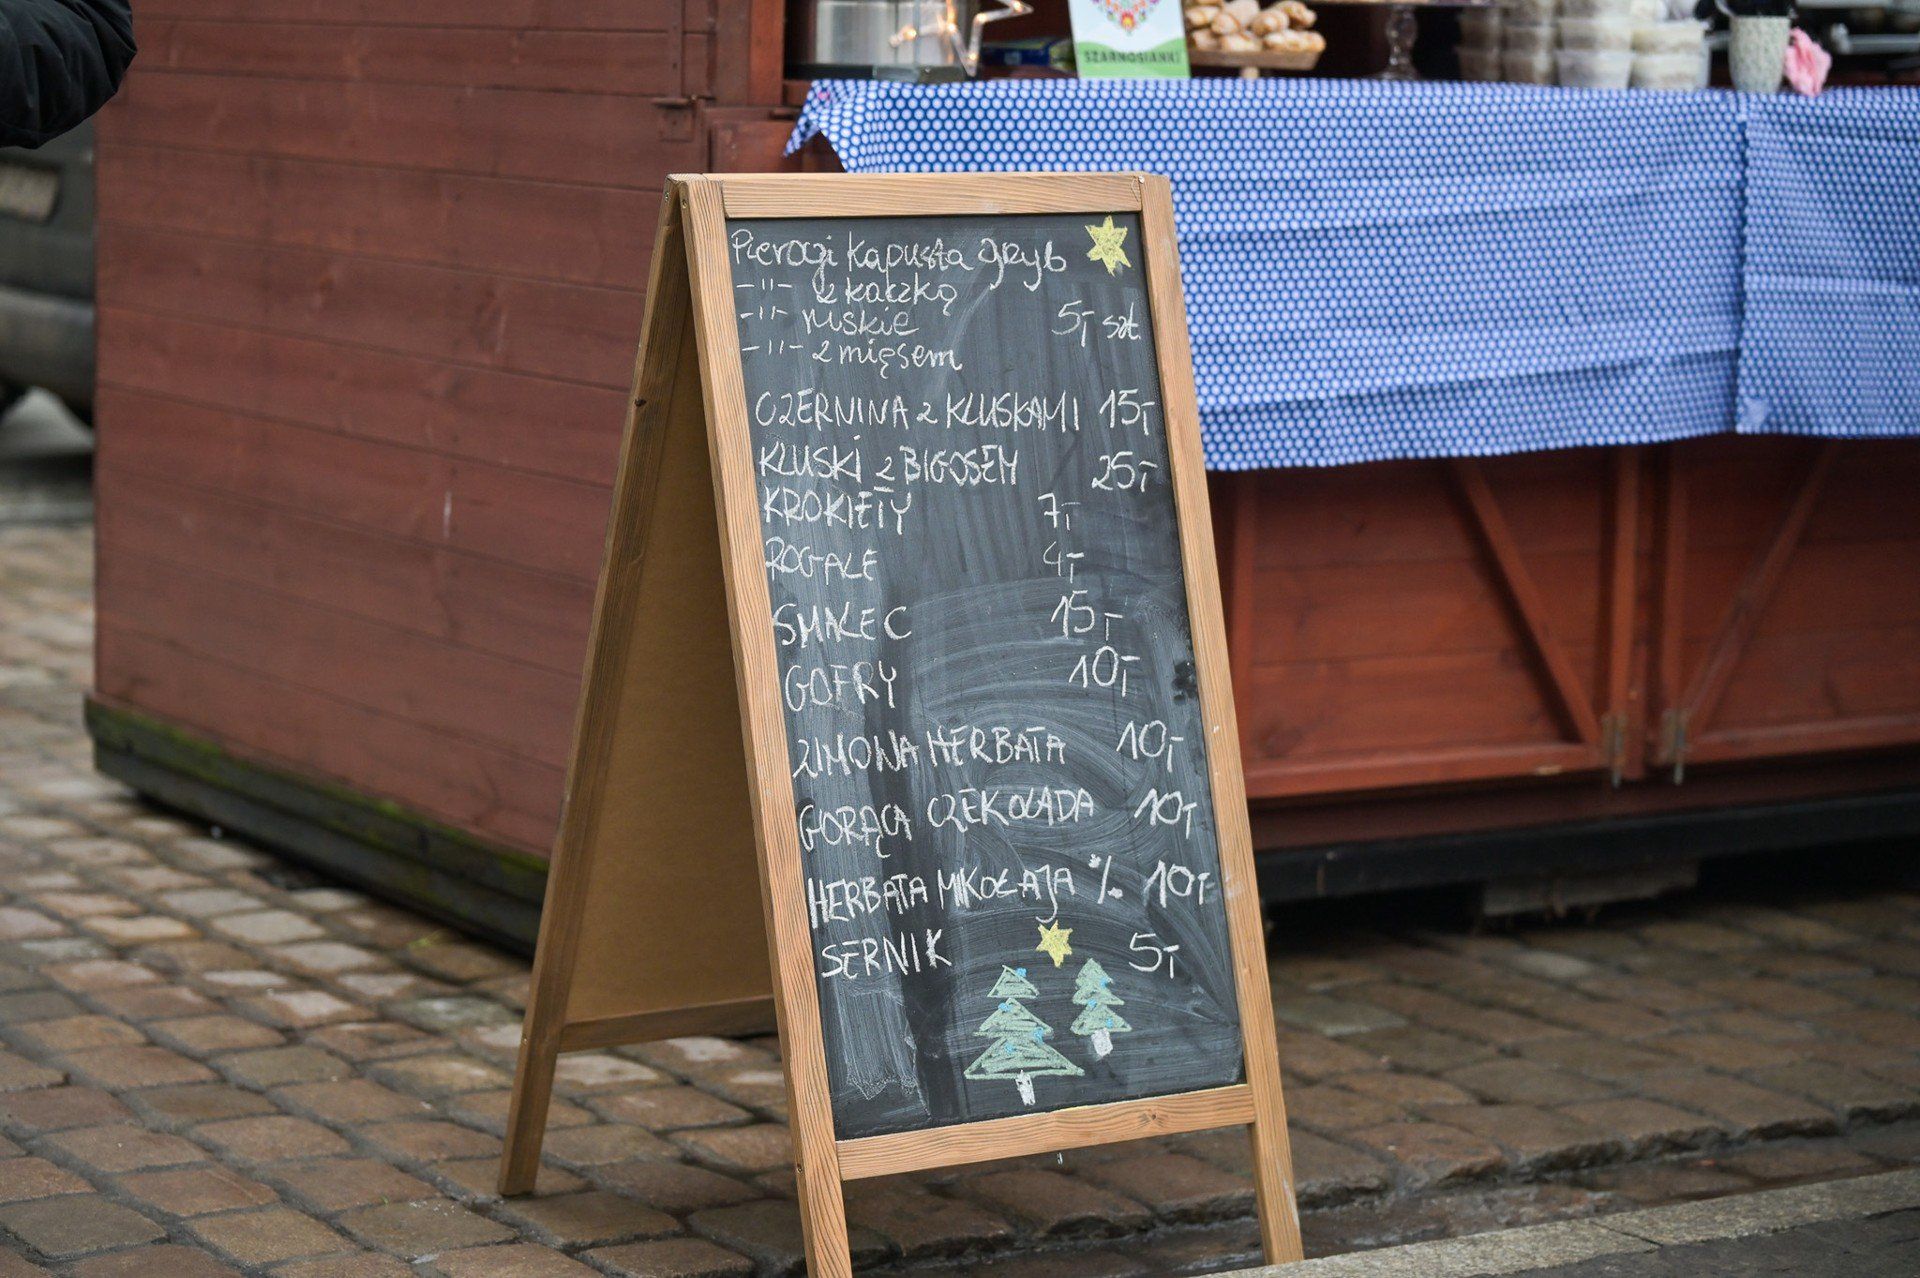 SZARNOSIANKI
Pierogi Kapusta grzyb
-"- z kaczką
-"- ruskie 5,- szt.
-"- z mięsem
CZERNINA z KLUSKAMI 15,-
KLUSKI z BIGOSEM 25,-
KROKIETY 7,-
ROGALE 4,-
SMALEC 15,-
GOFRY 10,-
ZIMOWA HERBATA 10,-
GORĄCA CZEKOLADA 10,-
HERBATA MIKOŁAJA % 10,-
SERNIK 5,-